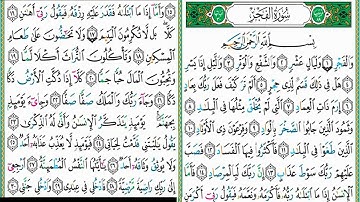 سُورَةُ الْفَجْرِ
بِسْمِ اللَّهِ الرَّحْمَٰنِ الرَّحِيمِ
وَالْفَجْرِ ١ وَلَيَالٍ عَشْرٍ ٢ وَالشَّفْعِ وَالْوَتْرِ ٣ وَاللَّيْلِ إِذَا يَسْرِ ٤
هَلْ فِي ذَٰلِكَ قَسَمٌ لِذِي حِجْرٍ ٥ أَلَمْ تَرَ كَيْفَ فَعَلَ رَبُّكَ بِعَادٍ ٦
إِرَمَ ذَاتِ الْعِمَادِ ٧ الَّتِي لَمْ يُخْلَقْ مِثْلُهَا فِي الْبِلَادِ ٨
وَثَمُودَ الَّذِينَ جَابُوا الصَّخْرَ بِالْوَادِ ٩ وَفِرْعَوْنَ ذِي الْأَوْتَادِ ١٠
الَّذِينَ طَغَوْا فِي الْبِلَادِ ١١ فَأَكْثَرُوا فِيهَا الْفَسَادَ ١٢ فَصَبَّ
عَلَيْهِمْ رَبُّكَ سَوْطَ عَذَابٍ ١٣ إِنَّ رَبَّكَ لَبِالْمِرْصَادِ ١٤ فَأَمَّا
الْإِنْسَانُ إِذَا مَا ابْتَلَاهُ رَبُّهُ فَأَكْرَمَهُ وَنَعَّمَهُ فَيَقُولُ رَبِّي أَكْرَمَنِ ١٥
وَأَمَّا إِذَا مَا ابْتَلَاهُ فَقَدَرَ عَلَيْهِ رِزْقَهُ فَيَقُولُ رَبِّي أَهَانَنِ ١٦
كَلَّا بَلْ لَا تُكْرِمُونَ الْيَتِيمَ ١٧ وَلَا تَحَاضُّونَ عَلَىٰ طَعَامِ
الْمِسْكِينِ ١٨ وَتَأْكُلُونَ التُّرَاثَ أَكْلًا لَمًّا ١٩
وَتُحِبُّونَ الْمَالَ حُبًّا جَمًّا ٢٠ كَلَّا إِذَا دُكَّتِ الْأَرْضُ دَكًّا
دَكًّا ٢١ وَجَاءَ رَبُّكَ وَالْمَلَكُ صَفًّا صَفًّا ٢٢ وَجِيءَ يَوْمَئِذٍ
بِجَهَنَّمَ يَوْمَئِذٍ يَتَذَكَّرُ الْإِنْسَانُ وَأَنَّىٰ لَهُ الذِّكْرَىٰ ٢٣
يَقُولُ يَا لَيْتَنِي قَدَّمْتُ لِحَيَاتِي ٢٤ فَيَوْمَئِذٍ لَا يُعَذِّبُ عَذَابَهُ أَحَدٌ ٢٥
وَلَا يُوثِقُ وَثَاقَهُ أَحَدٌ ٢٦ يَا أَيَّتُهَا النَّفْسُ الْمُطْمَئِنَّةُ ٢٧ ارْجِعِي
إِلَىٰ رَبِّكِ رَاضِيَةً مَرْضِيَّةً ٢٨ فَادْخُلِي فِي عِبَادِي ٢٩ وَادْخُلِي جَنَّتِي ٣٠